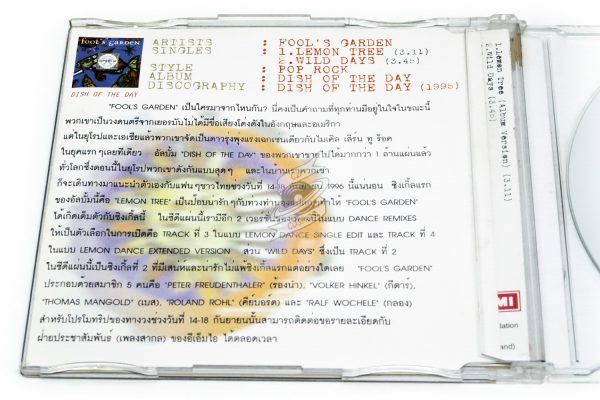 FOOL'S GARDEN
DISH OF THE DAY
ARTISTS : FOOL'S GARDEN
SINGLES : 1.LEMON TREE (3.11)
2.WILD DAYS (3.45)
STYLE : POP ROCK
ALBUM : DISH OF THE DAY
DISCOGRAPHY : DISH OF THE DAY (1995)
"FOOL'S GARDEN" เป็นใครมาจากไหนกัน? นี่คงเป็นคำถามที่ทุกท่านมีอยู่ในใจในขณะนี้
พวกเขาเป็นวงดนตรีจากเยอรมันไม่ได้มีชื่อเสียงโด่งดังในอังกฤษและอเมริกา
แต่ในยุโรปและเอเชียแล้วพวกเขาจัดเป็นดาวรุ่งพุ่งแรงเฉกเช่นเดียวกับไมเคิล เลิร์น ทู ร็อค
ในยุคแรกๆเลยทีเดียว อัลบั้ม "DISH OF THE DAY" ของพวกเขาขายไปได้มากกว่า 1 ล้านแผ่นแล้ว
ทั่วโลกซึ่งตอนนี้ในยุโรปพวกเขาดังกันแบบสุดๆ และในบ้านเราพวกเขา
ก็จะเดินทางมาแนะนำตัวเองกับแฟนๆชาวไทยช่วงวันที่ 14-18 กันยายน 1996 นี้แน่นอน ซิงเกิ้ลแรก
ของอัลบั้มนี้คือ "LEMON TREE" เป็นป๊อบน่ารักๆกับทาง ทำให้ "FOOL'S GARDEN"
ได้เกิดเต็มตัวกับซิงเกิ้ลนี้ ในซีดีแผ่นนี้เรามีอีก 2 เวอร์ชั่นของเพลงนี้ในแบบ DANCE REMIXES
ให้เป็นตัวเลือกในการเปิดคือ TRACK ที่ 3 ในแบบ LEMON DANCE SINGLE EDIT และ TRACK ที่ 4
ในแบบ LEMON DANCE EXTENDED VERSION ส่วน "WILD DAYS" ซึ่งเป็น TRACK ที่ 2
ในซีดีแผ่นนี้เป็นซิงเกิ้ลที่ 2 ที่มีเสน่ห์และน่ารักไม่แพ้ซิงเกิ้ลแรกแต่อย่างใดเลย "FOOL'S GARDEN"
ประกอบด้วยสมาชิก 5 คนคือ "PETER FREUDENTHALER" (ร้องนำ), "VOLKER HINKEL" (กีตาร์),
"THOMAS MANGOLD" (เบส), "ROLAND ROHL" (คีย์บอร์ด) และ "RALF WOCHELE" (กลอง)
สำหรับโปรโมทริปของทางวงช่วงวันที่ 14-18 กันยายนนั้นสามารถติดต่อขอรายละเอียดกับ
ฝ่ายประชาสัมพันธ์ (เพลงสากล) ของอีเอ็มไอ ได้ตลอดเวลา
1.Lemon Tree (Album Version) (3.11)
2.Wild Days (3.45)
MI
lation
and)